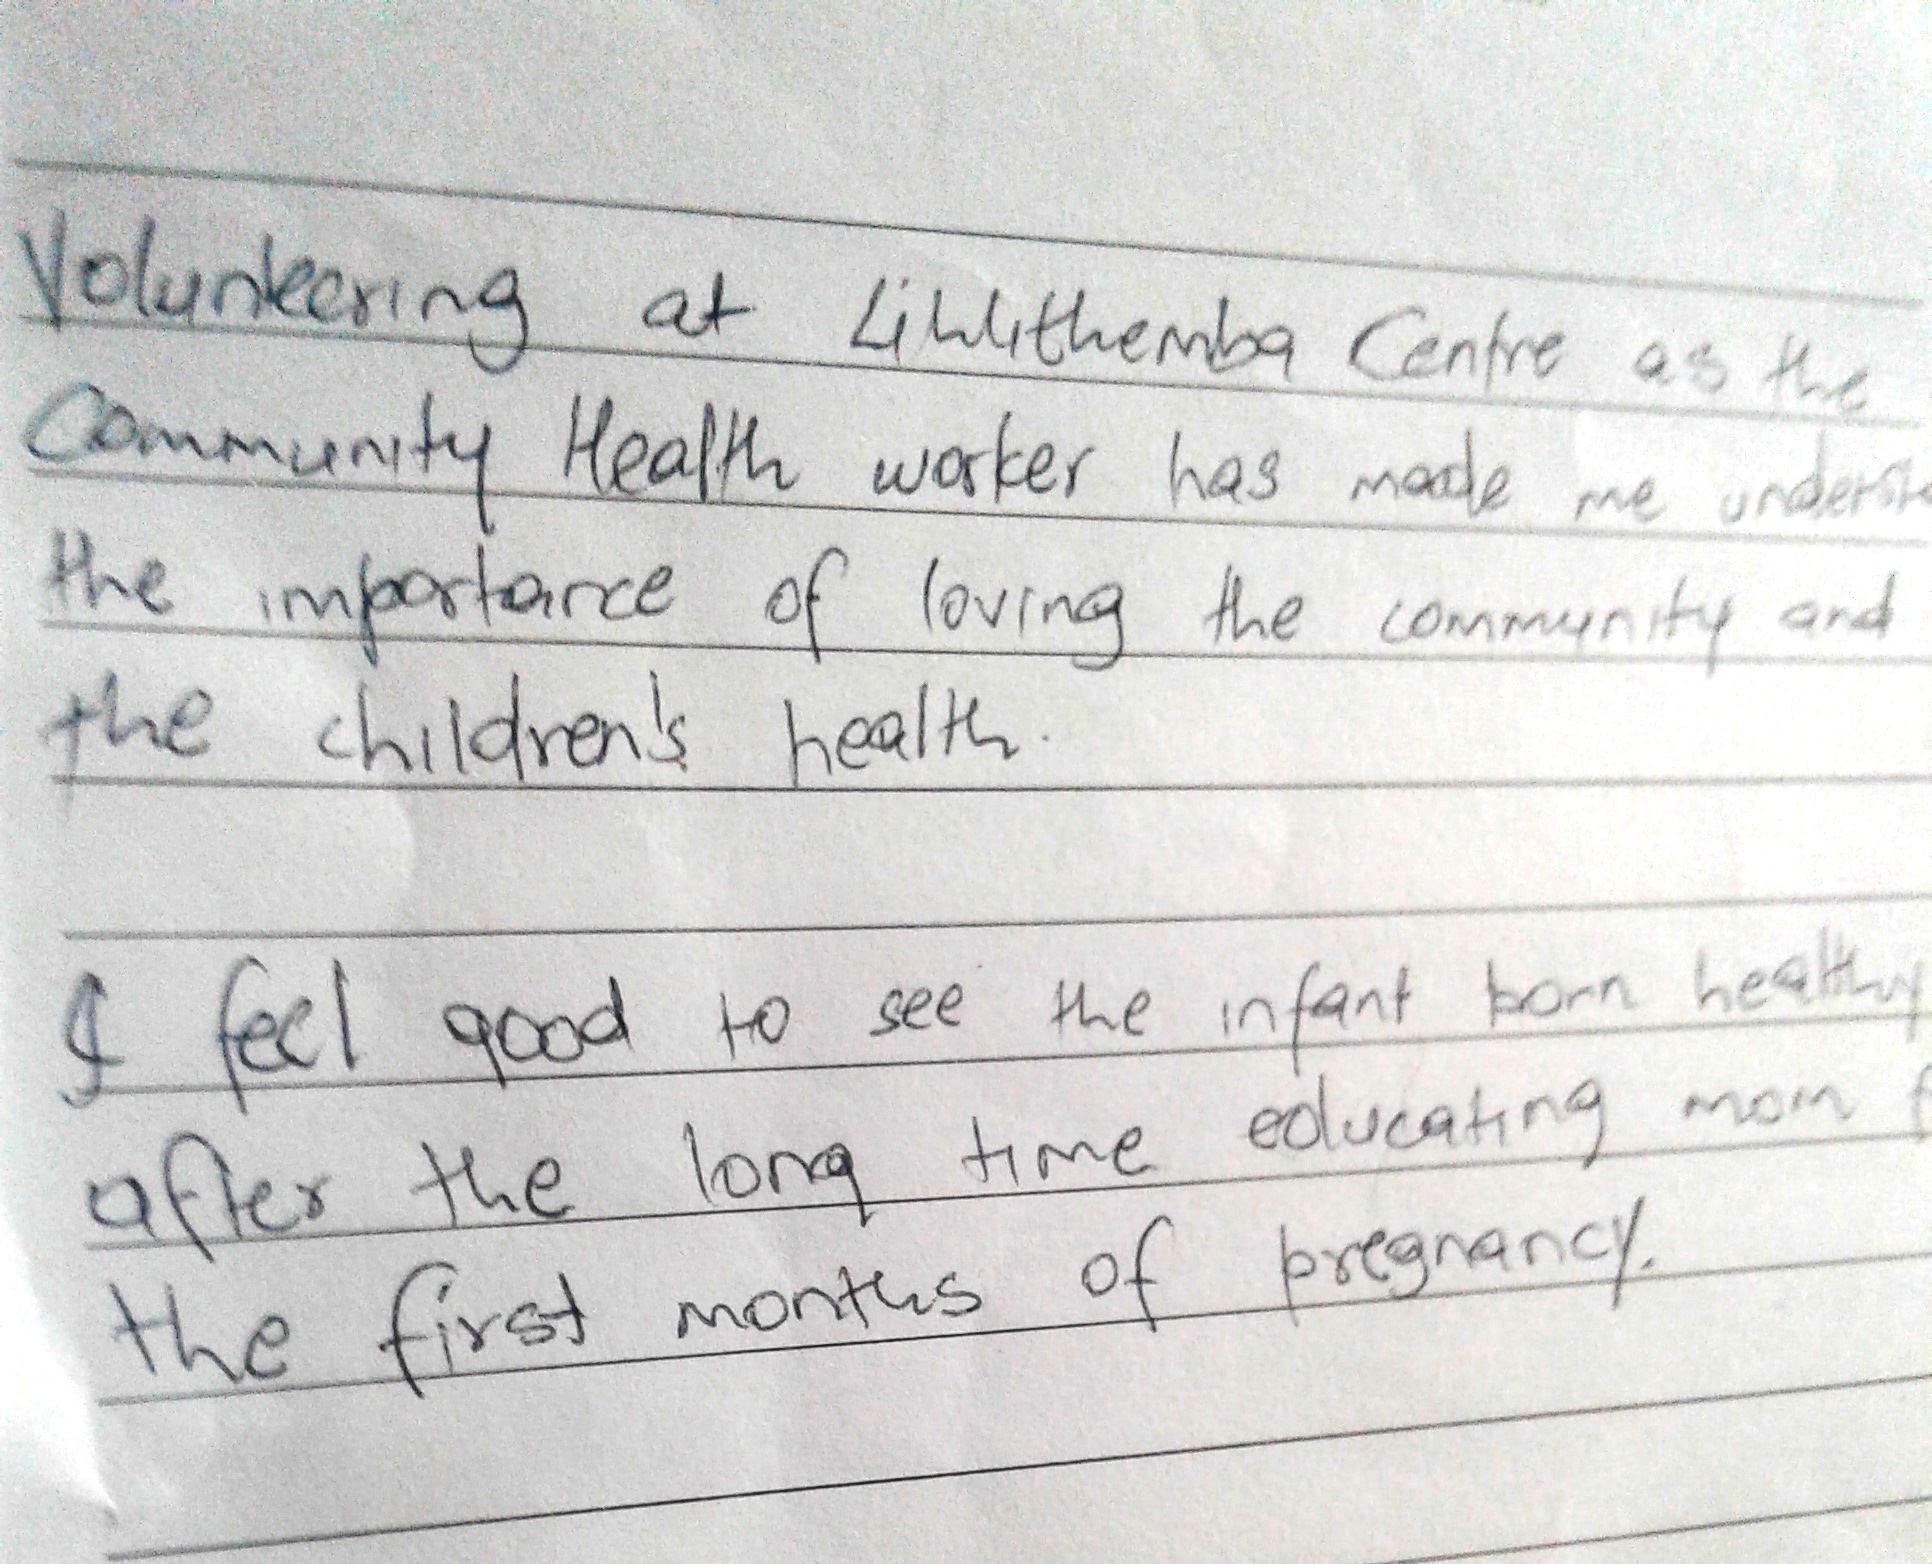 Volunteering at Lihlithemba Centre as the
Community Health worker has made me
the importance of loving the community and
the children's health.
I feel good to see the infant born healthy
after the long time educating mom
the first months of pregnancy.